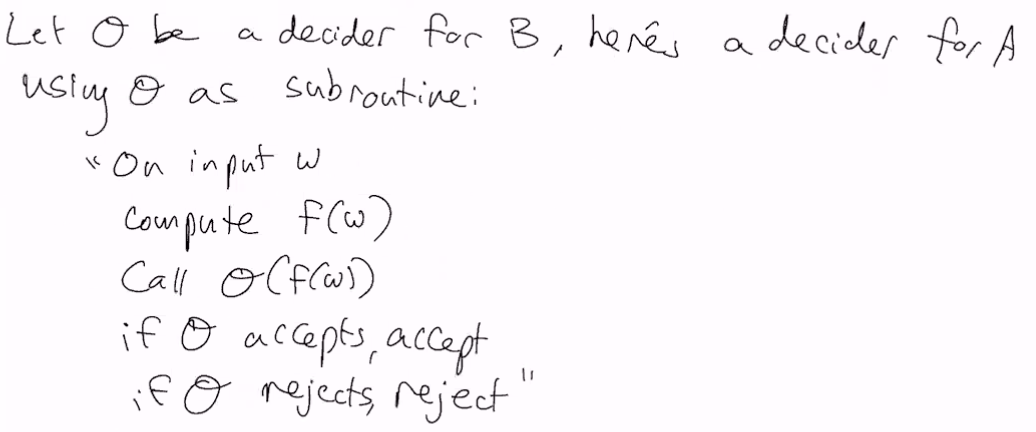 Let O be a decider for B, here's a decider for A
using O as subroutine:
"On input w
Compute f(w)
Call O(f(w))
if O accepts, accept
if O rejects, reject"